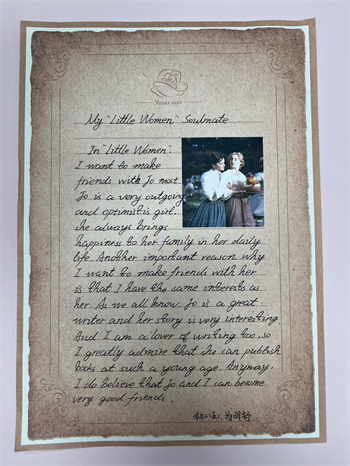 My "Little Women" Soulmate
In "Little Women".
I want to make
friends with Jo most.
Jo is a very outgoing
and optimistis girl.
she always brings
happiness to her family in her daily
life. Another important reason why
I want to make friends with her
is that I have the same interests as
her. As we all know. Jo is a great
writer and her story is very interesting
And I am a lover of writing too, so
I greatly admire that she can publish
books at such a young age. Anyway.
I do believe that Jo and I can become
very good friends.